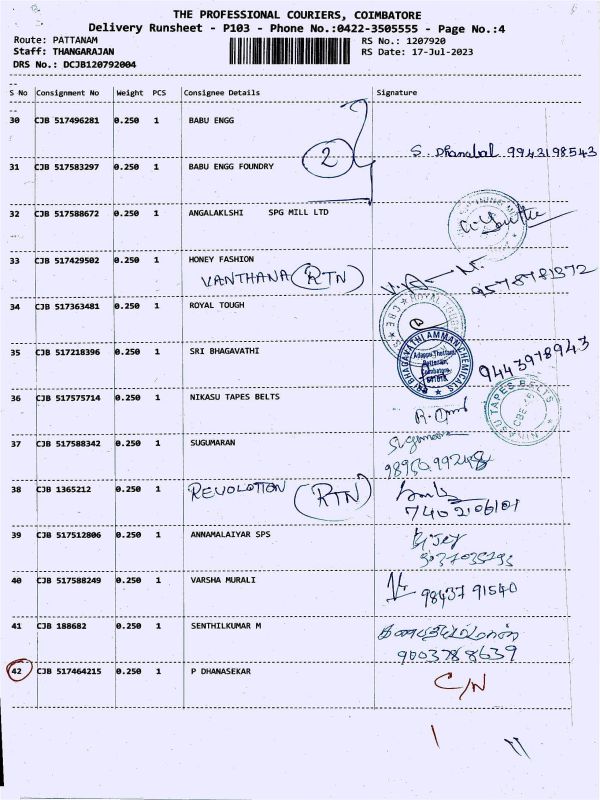 THE PROFESSIONAL COURIERS, COIMBATORE
Delivery Runsheet - P103 - Phone No.:0422-3505555 - Page No.:4
Route: PATTANAM RS No.: 1207920
Staff: THANGARAJAN RS Date: 17-Jul-2023
DRS No.: DCJB120792004
S No Consignment No Weight PCS Consignee Details Signature
30 CJB 517496281 0.250 1 BABU ENGG
2 S. Dhanabal 9943198543
31 CJB 517583297 0.250 1 BABU ENGG FOUNDRY
32 CJB 517588672 0.250 1 ANGALAKLSHI SPG MILL LTD
33 CJB 517429502 0.250 1 HONEY FASHION
VANTHANA RTN
9578781372
34 CJB 517363481 0.250 1 ROYAL TOUGH
ROYAL TOUGH CBE
35 CJB 517218396 0.250 1 SRI BHAGAVATHI 9443978943
SRI BHAGAVATHI AMMAN CHEMICALS
Pattanam
Coimbatore
641016
36 CJB 517575714 0.250 1 NIKASU TAPES BELTS
NIKASU TAPES BELTS
CBE-16
37 CJB 517588342 0.250 1 SUGUMARAN Sugumaran
38 CJB 1365212 0.250 1 REVOLOTION RTN
7402106101
39 CJB 517512806 0.250 1 ANNAMALAIYAR SPS
40 CJB 517588249 0.250 1 VARSHA MURALI 98437 91540
41 CJB 188682 0.250 1 SENTHILKUMAR M
9003788639
42 CJB 517464215 0.250 1 P DHANASEKAR C/N